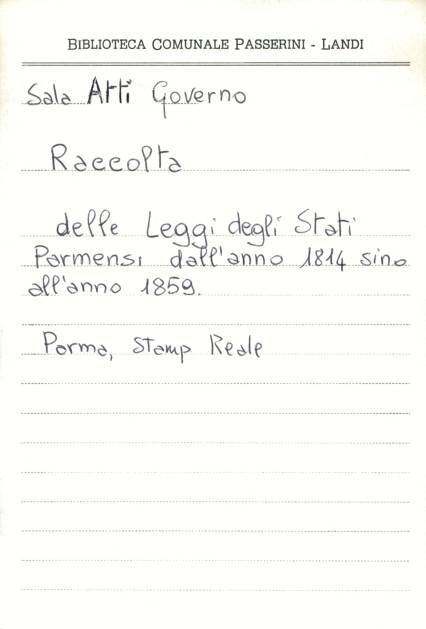 BIBLIOTECA COMUNALE PASSERINI - LANDI
Sala Atti Governo
Raccolta
delle Leggi degli Stati
Parmensi dall'anno 1814 sino
all'anno 1859.
Parma, Stamp Reale